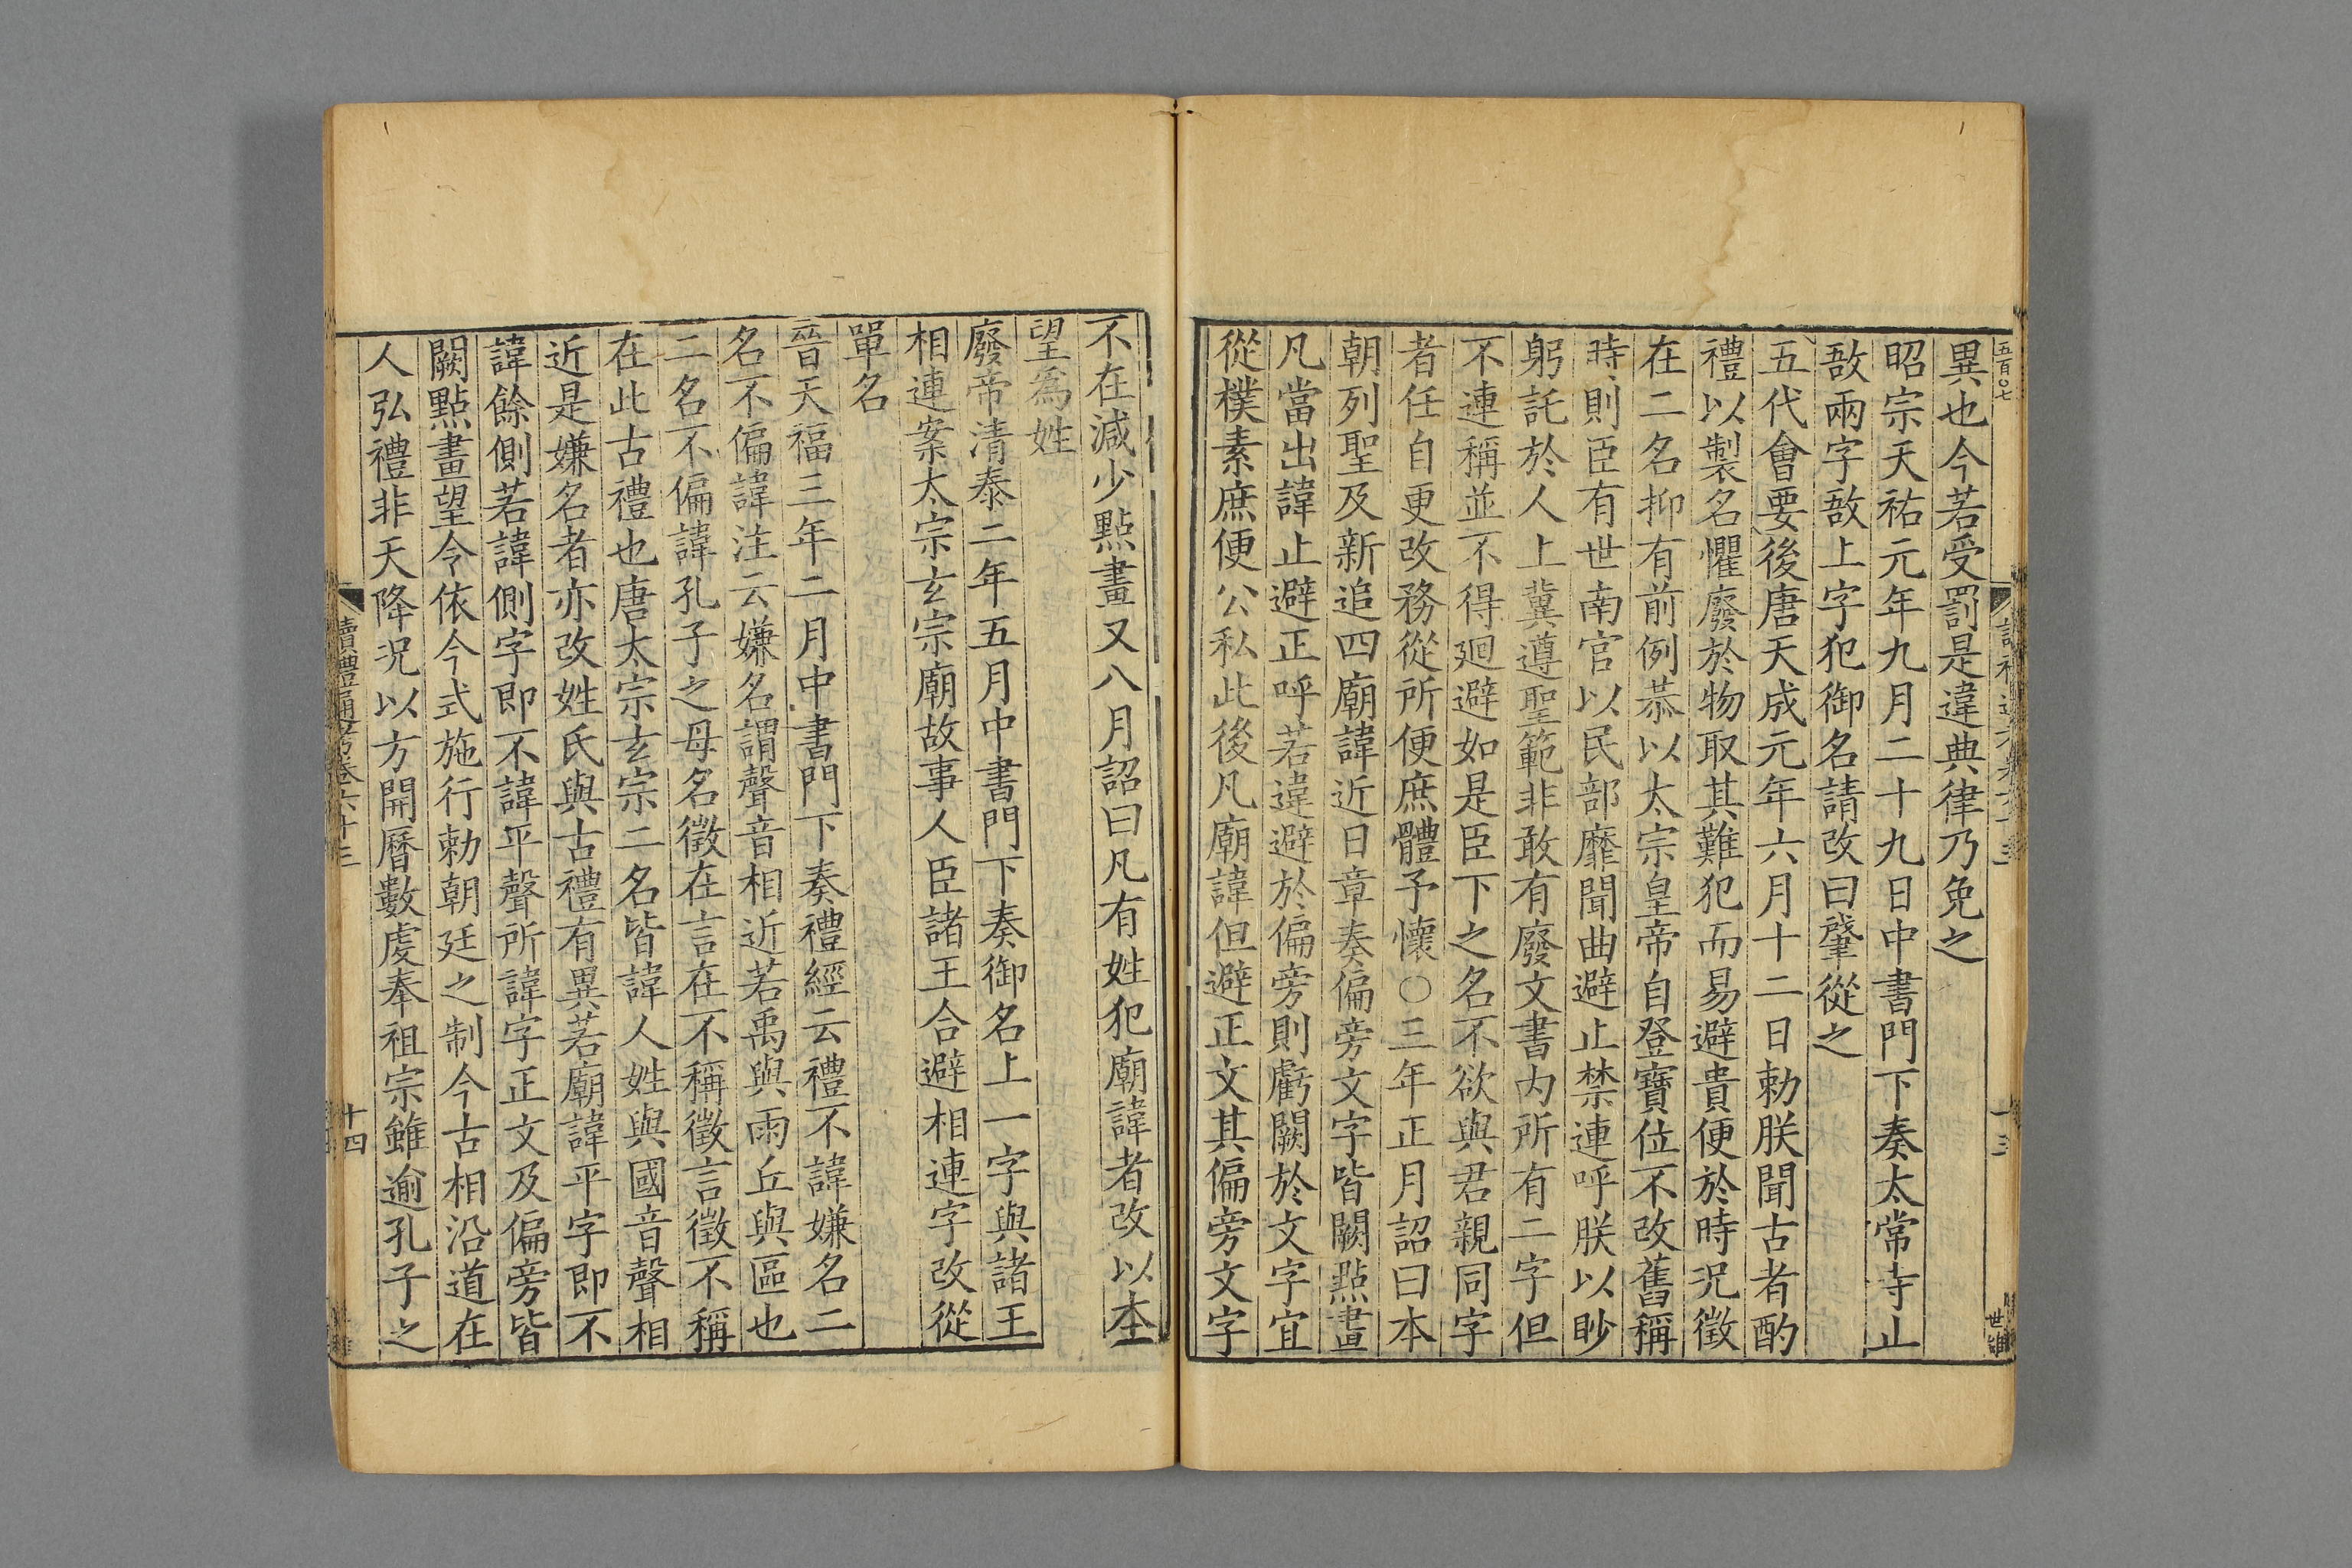 異也今若受罰是違典律乃免之
昭宗天祐元年九月二十九日中書門下奏太常寺止
敔兩字敔上字犯御名請改曰肇從之
五代會要後唐天成元年六月十二日勅朕聞古者酌
禮以製名懼廢於物取其難犯而易避貴便於時況徵
在二名抑有前例恭以太宗皇帝自登寶位不改舊稱
時則臣有世南官以民部靡聞曲避止禁連呼朕以眇
躬託於人上冀遵聖範非敢有廢文書內所有二字但
不連稱並不得廻避如是臣下之名不欲與君親同字
者任自更改務從所便庶體予懷○三年正月詔曰本
朝列聖及新追四廟諱近日章奏偏旁文字皆闕點畫
凡當出諱止避正呼若違避於偏旁則虧闕於文字宜
從樸素庶便公私此後凡廟諱但避正文其偏旁文字
不在減少點畫又八月詔曰凡有姓犯廟諱者改以本
望爲姓
廢帝清泰二年五月中書門下奏御名上一字與諸王
相連案太宗玄宗廟故事人臣諸王合避相連字改從
單名
晉天福三年二月中書門下奏禮經云禮不諱嫌名二
名不偏諱注云嫌名謂聲音相近若禹與雨丘與區也
二名不偏諱孔子之母名徵在言在不稱徵言徵不稱
在此古禮也唐太宗玄宗二名皆諱人姓與國音聲相
近是嫌名者亦改姓氏與古禮有異若廟諱平字即不
諱餘側若諱側字即不諱平聲所諱字正文及偏旁皆
闕點畫望令依今式施行勅朝廷之制今古相沿道在
人弘禮非天降況以方開曆數虔奉祖宗雖逾孔子之
讀禮通考卷六十三
十四